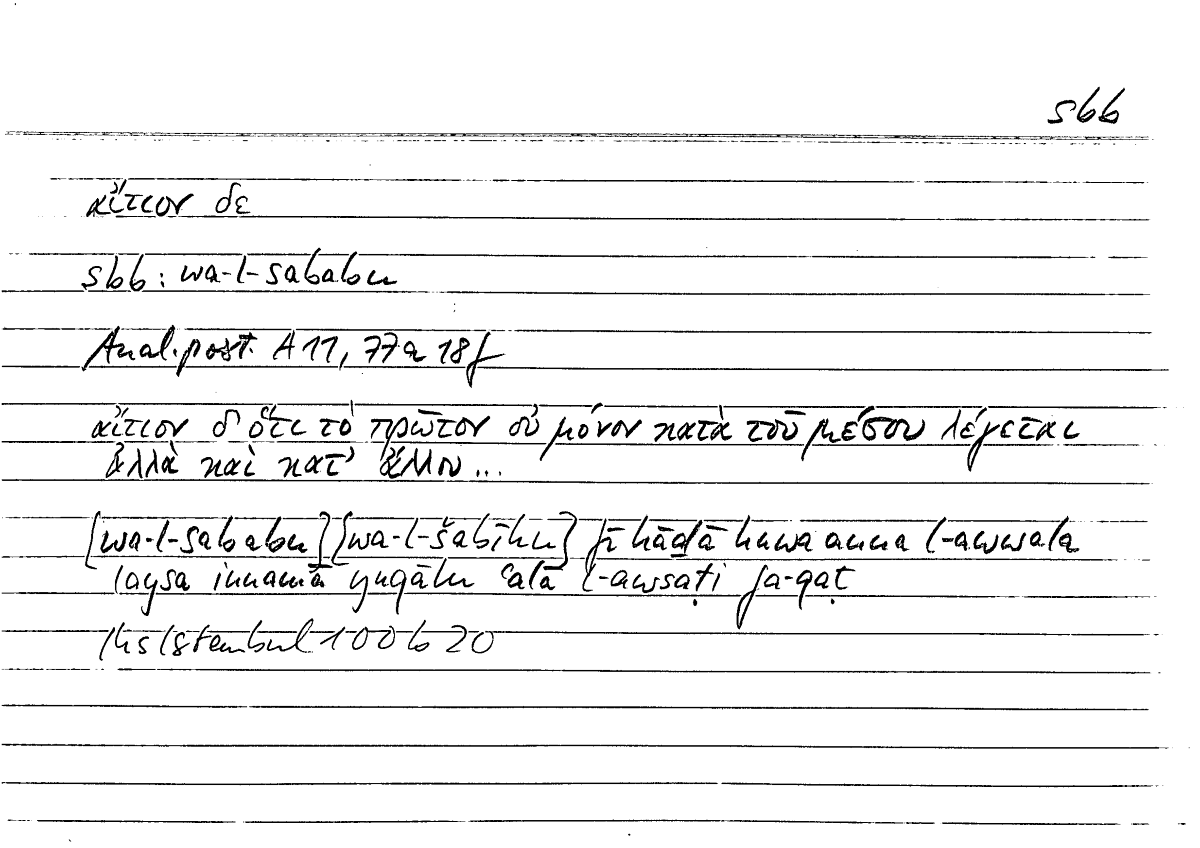 sbb
αἴτιον δε
sbb: wa-l-sababu
Anal.post. A 11, 77a 18f
αἴτιον δ ὅτι τὸ πρῶτον οὐ μόνον κατὰ τοῦ μέσου λέγεται
ἀλλὰ καὶ κατ' ἄλλου...
[wa-l-sababu] [wa-l-šabīhu] fī hāḏā huwa anna l-awwala
laysa innamā yuqālu ʿalā l-awsaṭi fa-qaṭ
Hs Istanbul 100b 20